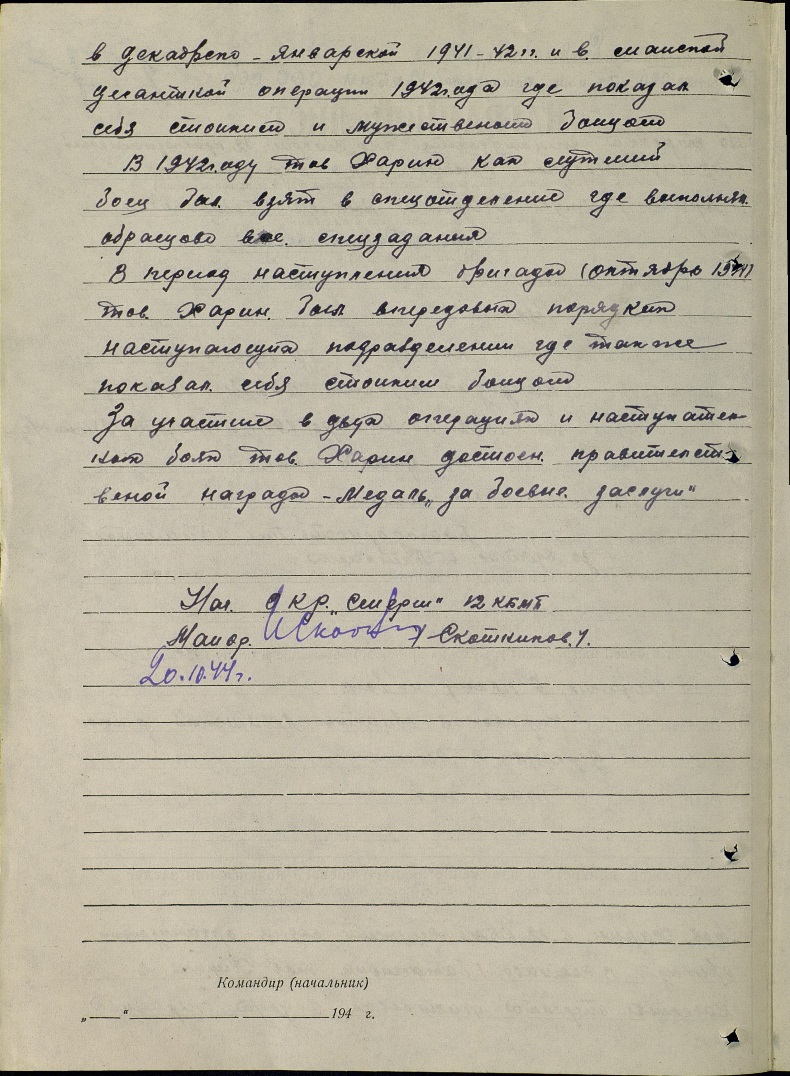 в декабрско - январской 1941-42гг. и в майской
десантной операции 1942года где показал
себя стойким и мужественым бойцом
В 1942году тов Харин как лутший
боец был взят в спецотделение где выполнял
образцово все спецзадания
В период наступления бригады (октябрь 1944)
тов. Харин был впередовых порядках
наступающих подразделении где также
показал себя стойким бойцом
За участие в двух операциях и наступатель-
ных боях тов. Харин достоен правительст-
веной награды - Медаль „за боевые заслуги"
Нач. ОКР „Смерш" 12 КБМП
Майор. / Скотников.
20.10.44г.
Командир (начальник)
„ " 194 г.